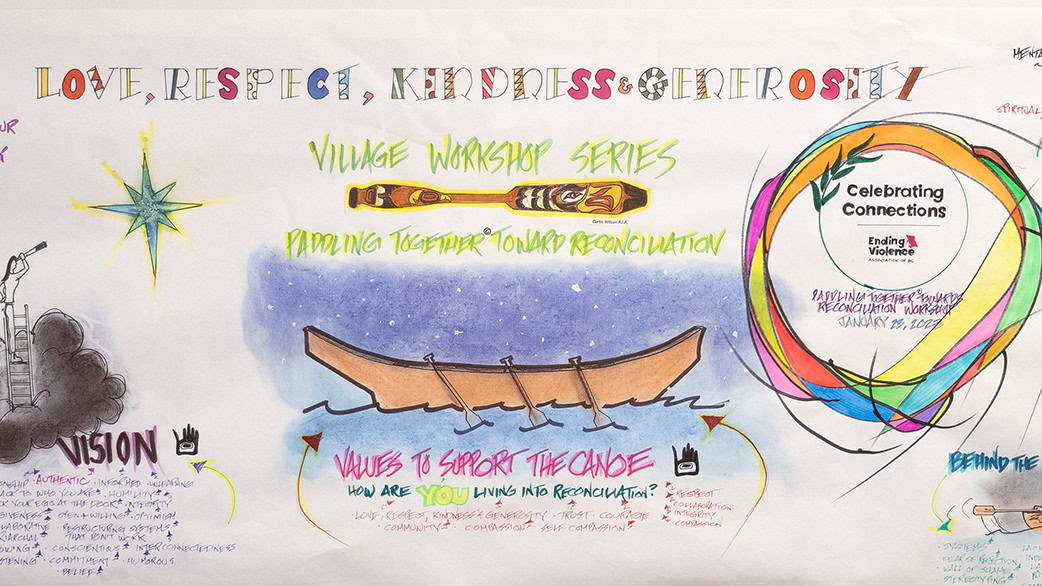 LOVE, RESPECT, KINDNESS & GENEROSITY
MENTA
SPIRITUAL
VILLAGE WORKSHOP SERIES
Curtis Wilson R.I.P.
PADDLING TOGETHER© TOWARD RECONCILIATION
Celebrating
Connections
Ending
Violence
ASSOCIATION OF BC
PADDLING TOGETHER© TOWARDS
RECONCILIATION WORKSHOP
JANUARY 23, 2023
VISION
AUTHENTIC · INFORMED ·
TO WHO YOU ARE · HUMILITY
YOUR EGO AT THE DOCK · INTEGRITY
OPEN & WILLING · OPTIMISM
RESTRUCTURING SYSTEMS
THAT DON'T WORK
· CONSCIENTIOUS · INTERCONNECTEDNESS
· COMMITMENT · HUMOROUS
· BELIEF
VALUES TO SUPPORT THE CANOE
HOW ARE YOU LIVING INTO RECONCILIATION?
· LOVE, RESPECT, KINDNESS & GENEROSITY · TRUST · COURAGE
· COMMUNITY · COMPASSION · SELF-COMPASSION
RESPECT
COLLABORATION
INTEGRITY
COMPASSION
BEHIND THE
· SYSTEMS
· FEAR OF REJECTION
· WALL OF SHAME
· STEREOTYPING